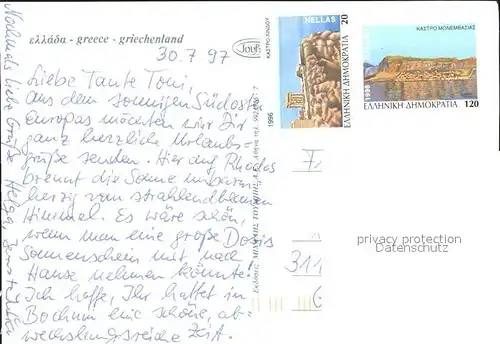 ελλάδα - greece - griechenland
30.7.97
Liebe Tante Toni,
aus dem sonnigen Südosten
Europas möchten wir Dir
ganz herzliche Urlaubs-
grüße senden. Hier auf Rhodos
brennt die Sonne unbarm-
herzig vom strahlendblauen
Himmel. Es wäre schön,
wenn man eine große Dosis
Sonnenschein mit nach
Hause nehmen könnte.
Ich hoffe, Ihr hattet in
Bochum eine schöne, ab-
wechslungsreiche Zeit.
Nochmals liebe Grüße Helga,
ΚΑΣΤΡΟ ΛΙΝΔΟΥ
HELLAS
20
ΕΛΛΗΝΙΚΗ ΔΗΜΟΚΡΑΤΙΑ
1996
ΚΑΣΤΡΟ ΜΟΝΕΜΒΑΣΙΑΣ
1996
ΕΛΛΗΝΙΚΗ ΔΗΜΟΚΡΑΤΙΑ 120
311
privacy protection
Datenschutz